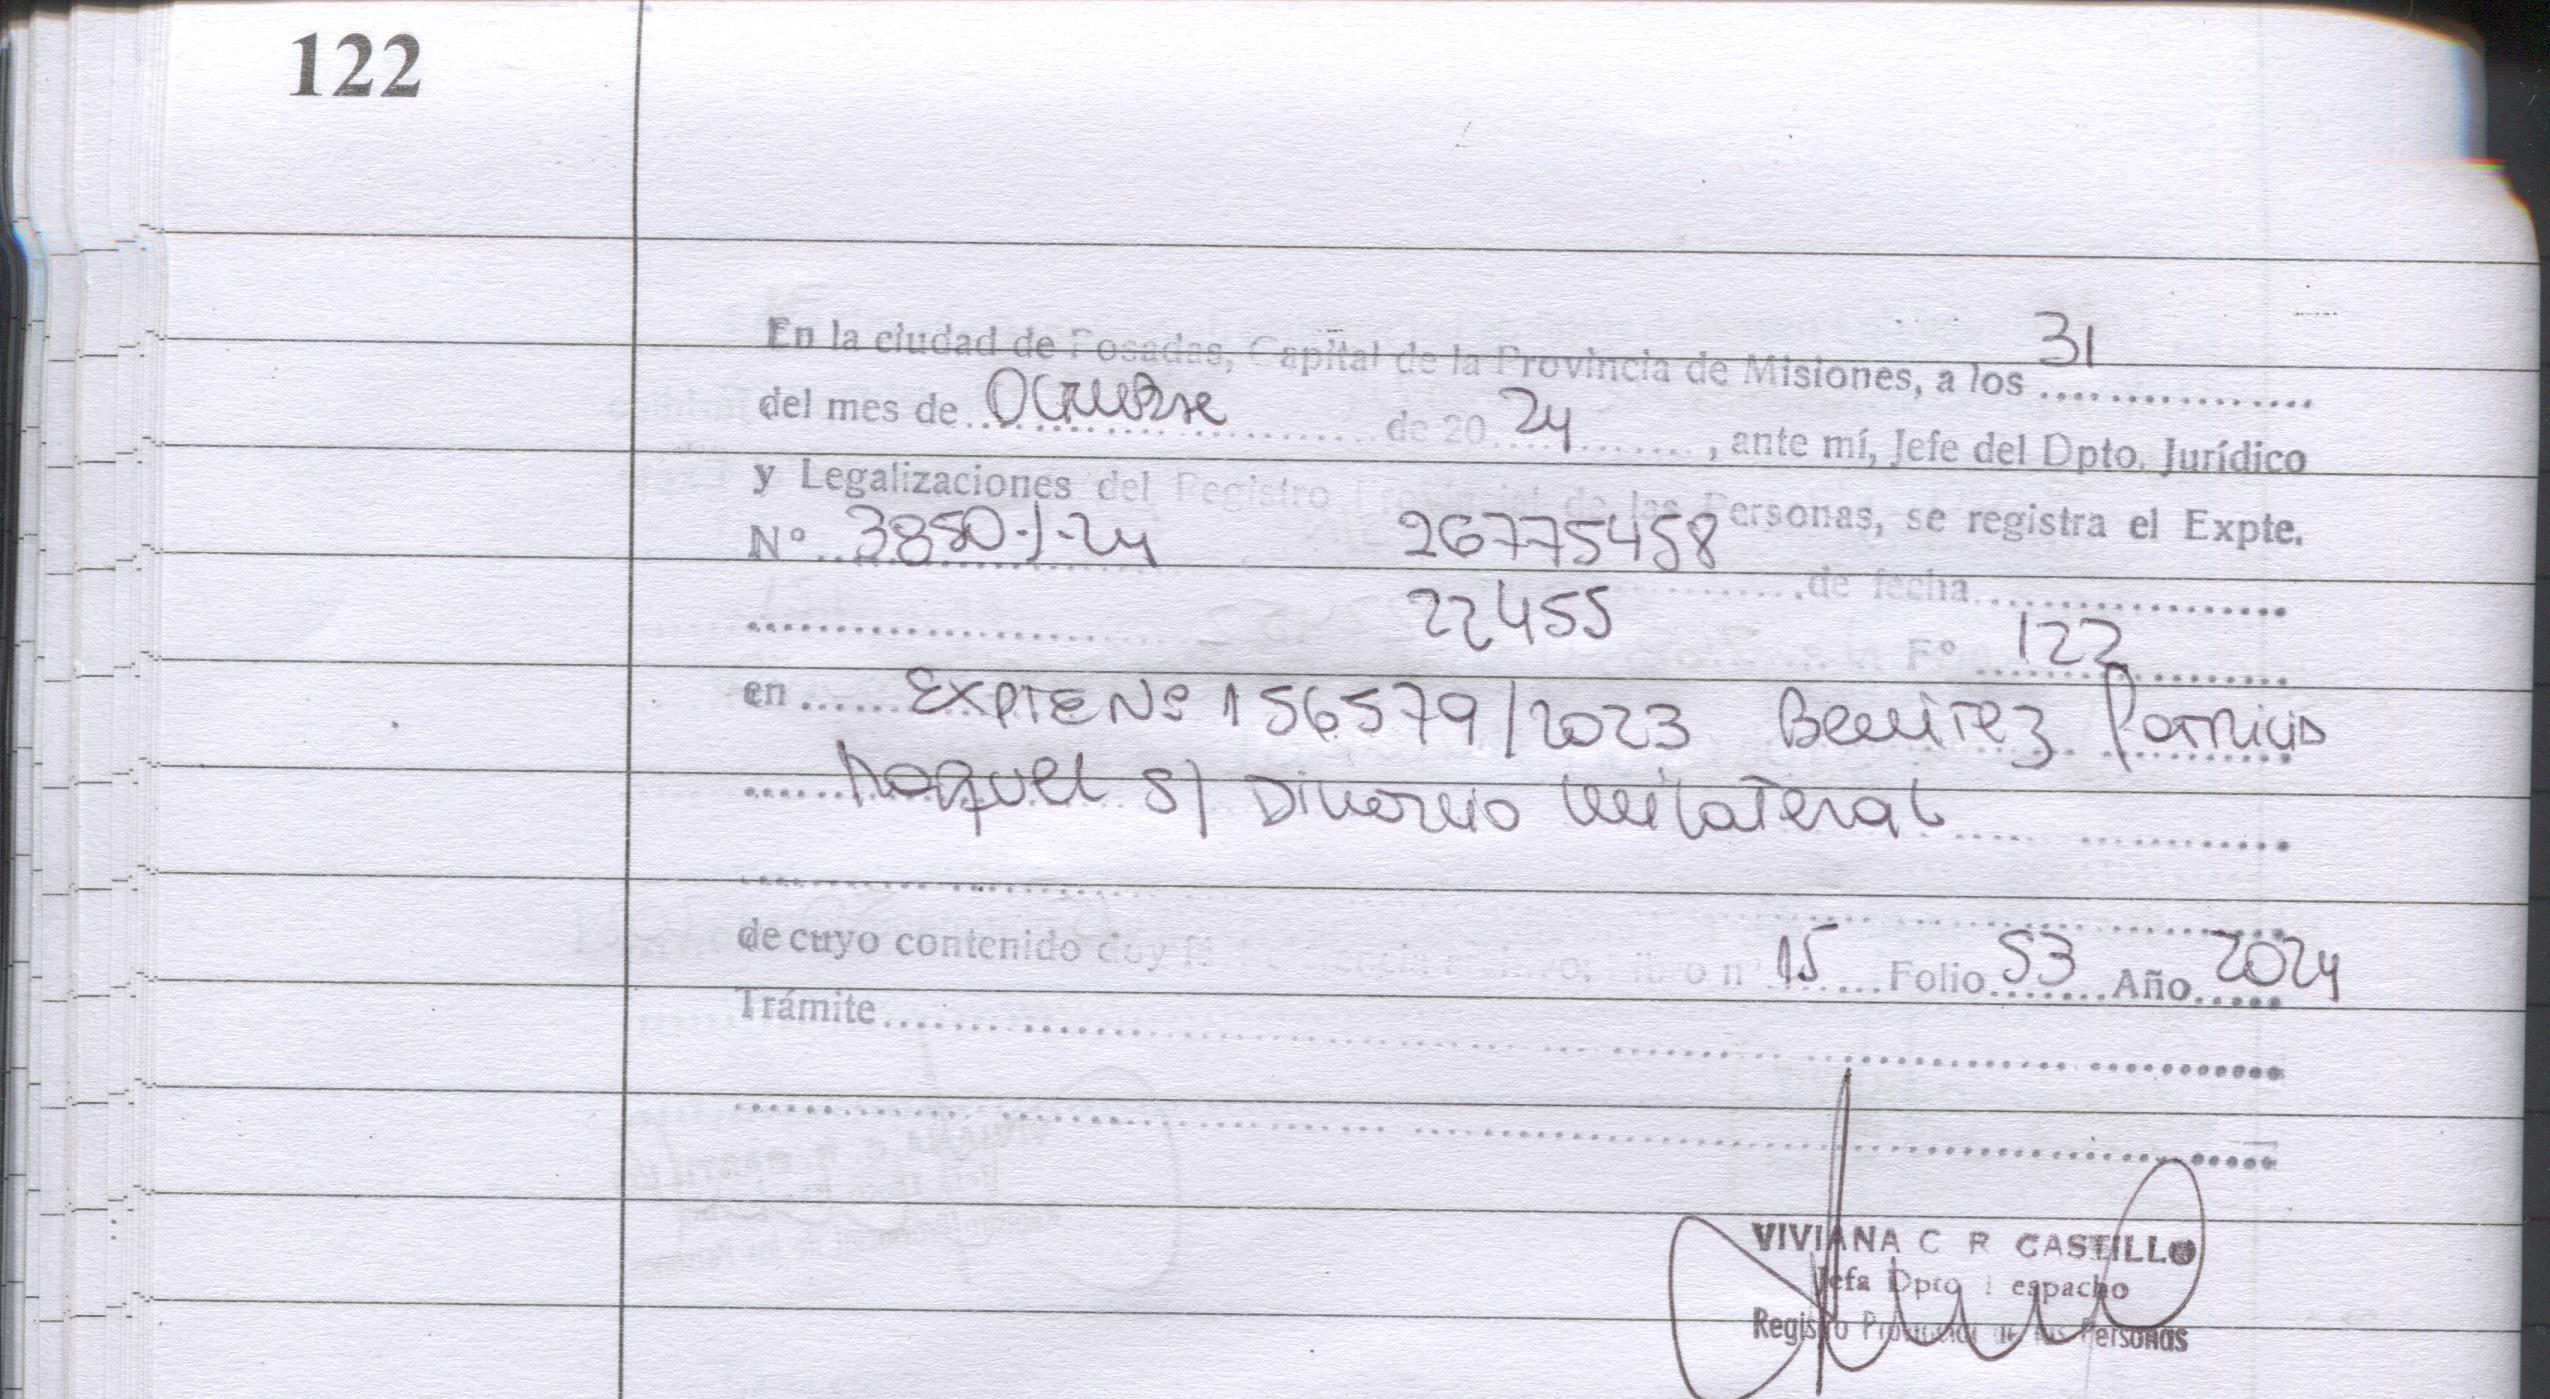 122
En la ciudad de Posadas, Capital de la Provincia de Misiones, a los 31
del mes de Octubre de 20 24, ante mí, Jefe del Dpto. Jurídico
y Legalizaciones del Registro Provincial de las Personas, se registra el Expte.
Nº 3850-J-24 26775458
22455 de fecha
Fº 122
en EXPTE Nº 156579/2023 Benitez Patricia
Raquel S/ Divorcio Unilateral
de cuyo contenido doy fe Libro nº 15 Folio 53 Año 2024
Trámite
VIVIANA C R CASTILLO
Jefa Dpto Despacho
Registro Provincial de las Personas